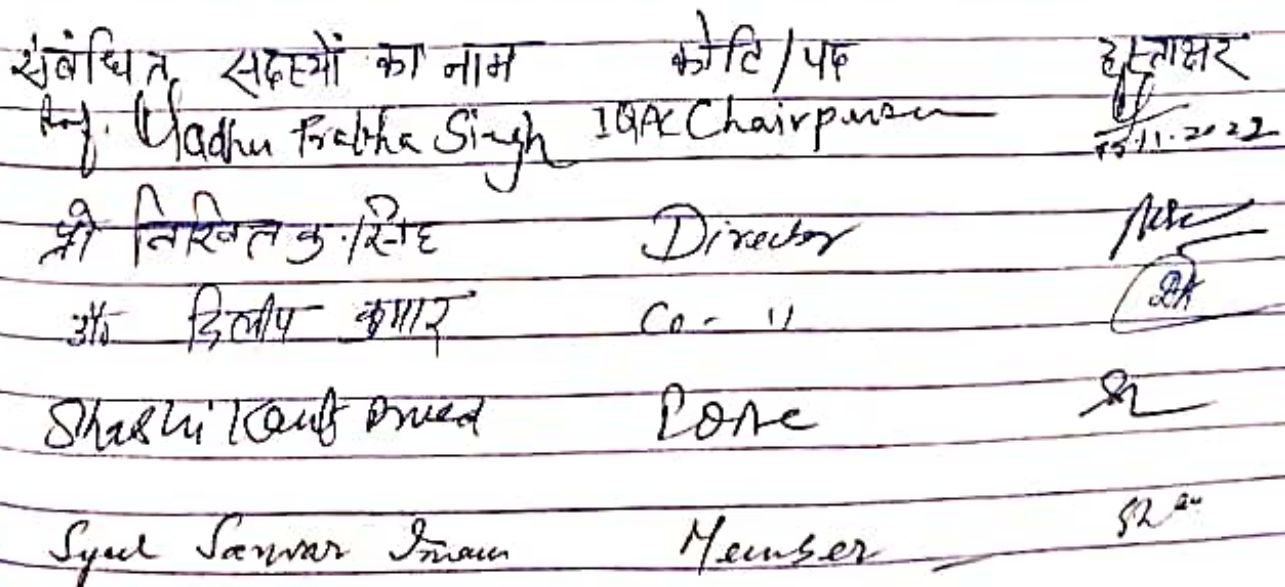 संबंधित सदस्यों का नाम कोटि/पद हस्ताक्षर
Prof. Madhu Prabha Singh IQAC Chairperson 11.2022
श्री निखिल कु. सिंह Director
डॉ० दिलीप कुमार Co- 11
Shashi Kant
Syed Sarwar Imam Member